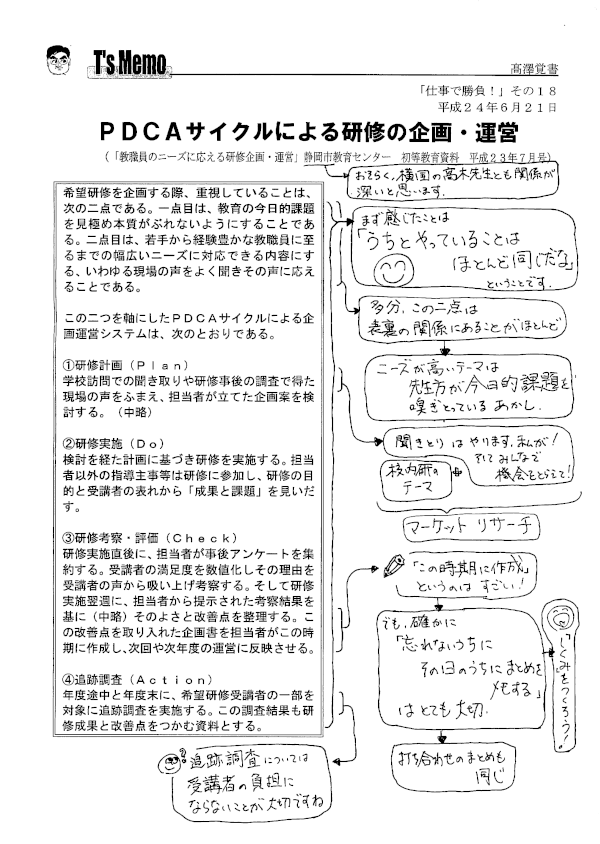 T's Memo
髙澤覚書
「仕事で勝負！」その１８
平成２４年６月２１日
ＰＤＣＡサイクルによる研修の企画・運営
（「教職員のニーズに応える研修企画・運営」静岡市教育センター　初等教育資料　平成２３年７月号）
希望研修を企画する際、重視していることは、
次の二点である。一点目は、教育の今日的課題
を見極め本質がぶれないようにすることであ
る。二点目は、若手から経験豊かな教職員に至
るまでの幅広いニーズに対応できる内容にす
る、いわゆる現場の声をよく聞きその声に応え
ることである。
この二つを軸にしたＰＤＣＡサイクルによる企
画運営システムは、次のとおりである。
①研修計画（Ｐｌａｎ）
学校訪問での聞き取りや研修事後の調査で得た
現場の声をふまえ、担当者が立てた企画案を検
討する。（中略）
②研修実施（Ｄｏ）
検討を経た計画に基づき研修を実施する。担当
者以外の指導主事等は研修に参加し、研修の目
的と受講者の表れから「成果と課題」を見いだ
す。
③研修考察・評価（Ｃｈｅｃｋ）
研修実施直後に、担当者が事後アンケートを集
約する。受講者の満足度を数値化しその理由を
受講者の声から吸い上げ考察する。そして研修
実施翌週に、担当者から提示された考察結果を
基に（中略）そのよさと改善点を整理する。こ
の改善点を取り入れた企画書を担当者がこの時
期に作成し、次回や次年度の運営に反映させる。
④追跡調査（Ａｃｔｉｏｎ）
年度途中と年度末に、希望研修受講者の一部を
対象に追跡調査を実施する。この調査結果も研
修成果と改善点をつかむ資料とする。
おそらく、横国の高木先生とも関係が
深いと思います。
まず感じたことは
「うちとやっていることは
ほとんど同じだな」
ということです。
多分、この二点は
表裏の関係にあることがほとんど
ニーズが高いテーマは
先生方が今日的課題を
嗅ぎとっているあかし。
聞きとりはやります。私が！
そしてみんなで
機会をとらえて！
校内研の
テーマ
マーケットリサーチ
「この時期に作成」
というのはすごい！
でも、確かに
「忘れないうちに
その日のうちにまとめを
メモする」
はとても大切。
「しくみをつくろう！」
打ち合わせのまとめも
同じ
追跡調査については
受講者の負担に
ならないことが大切ですね